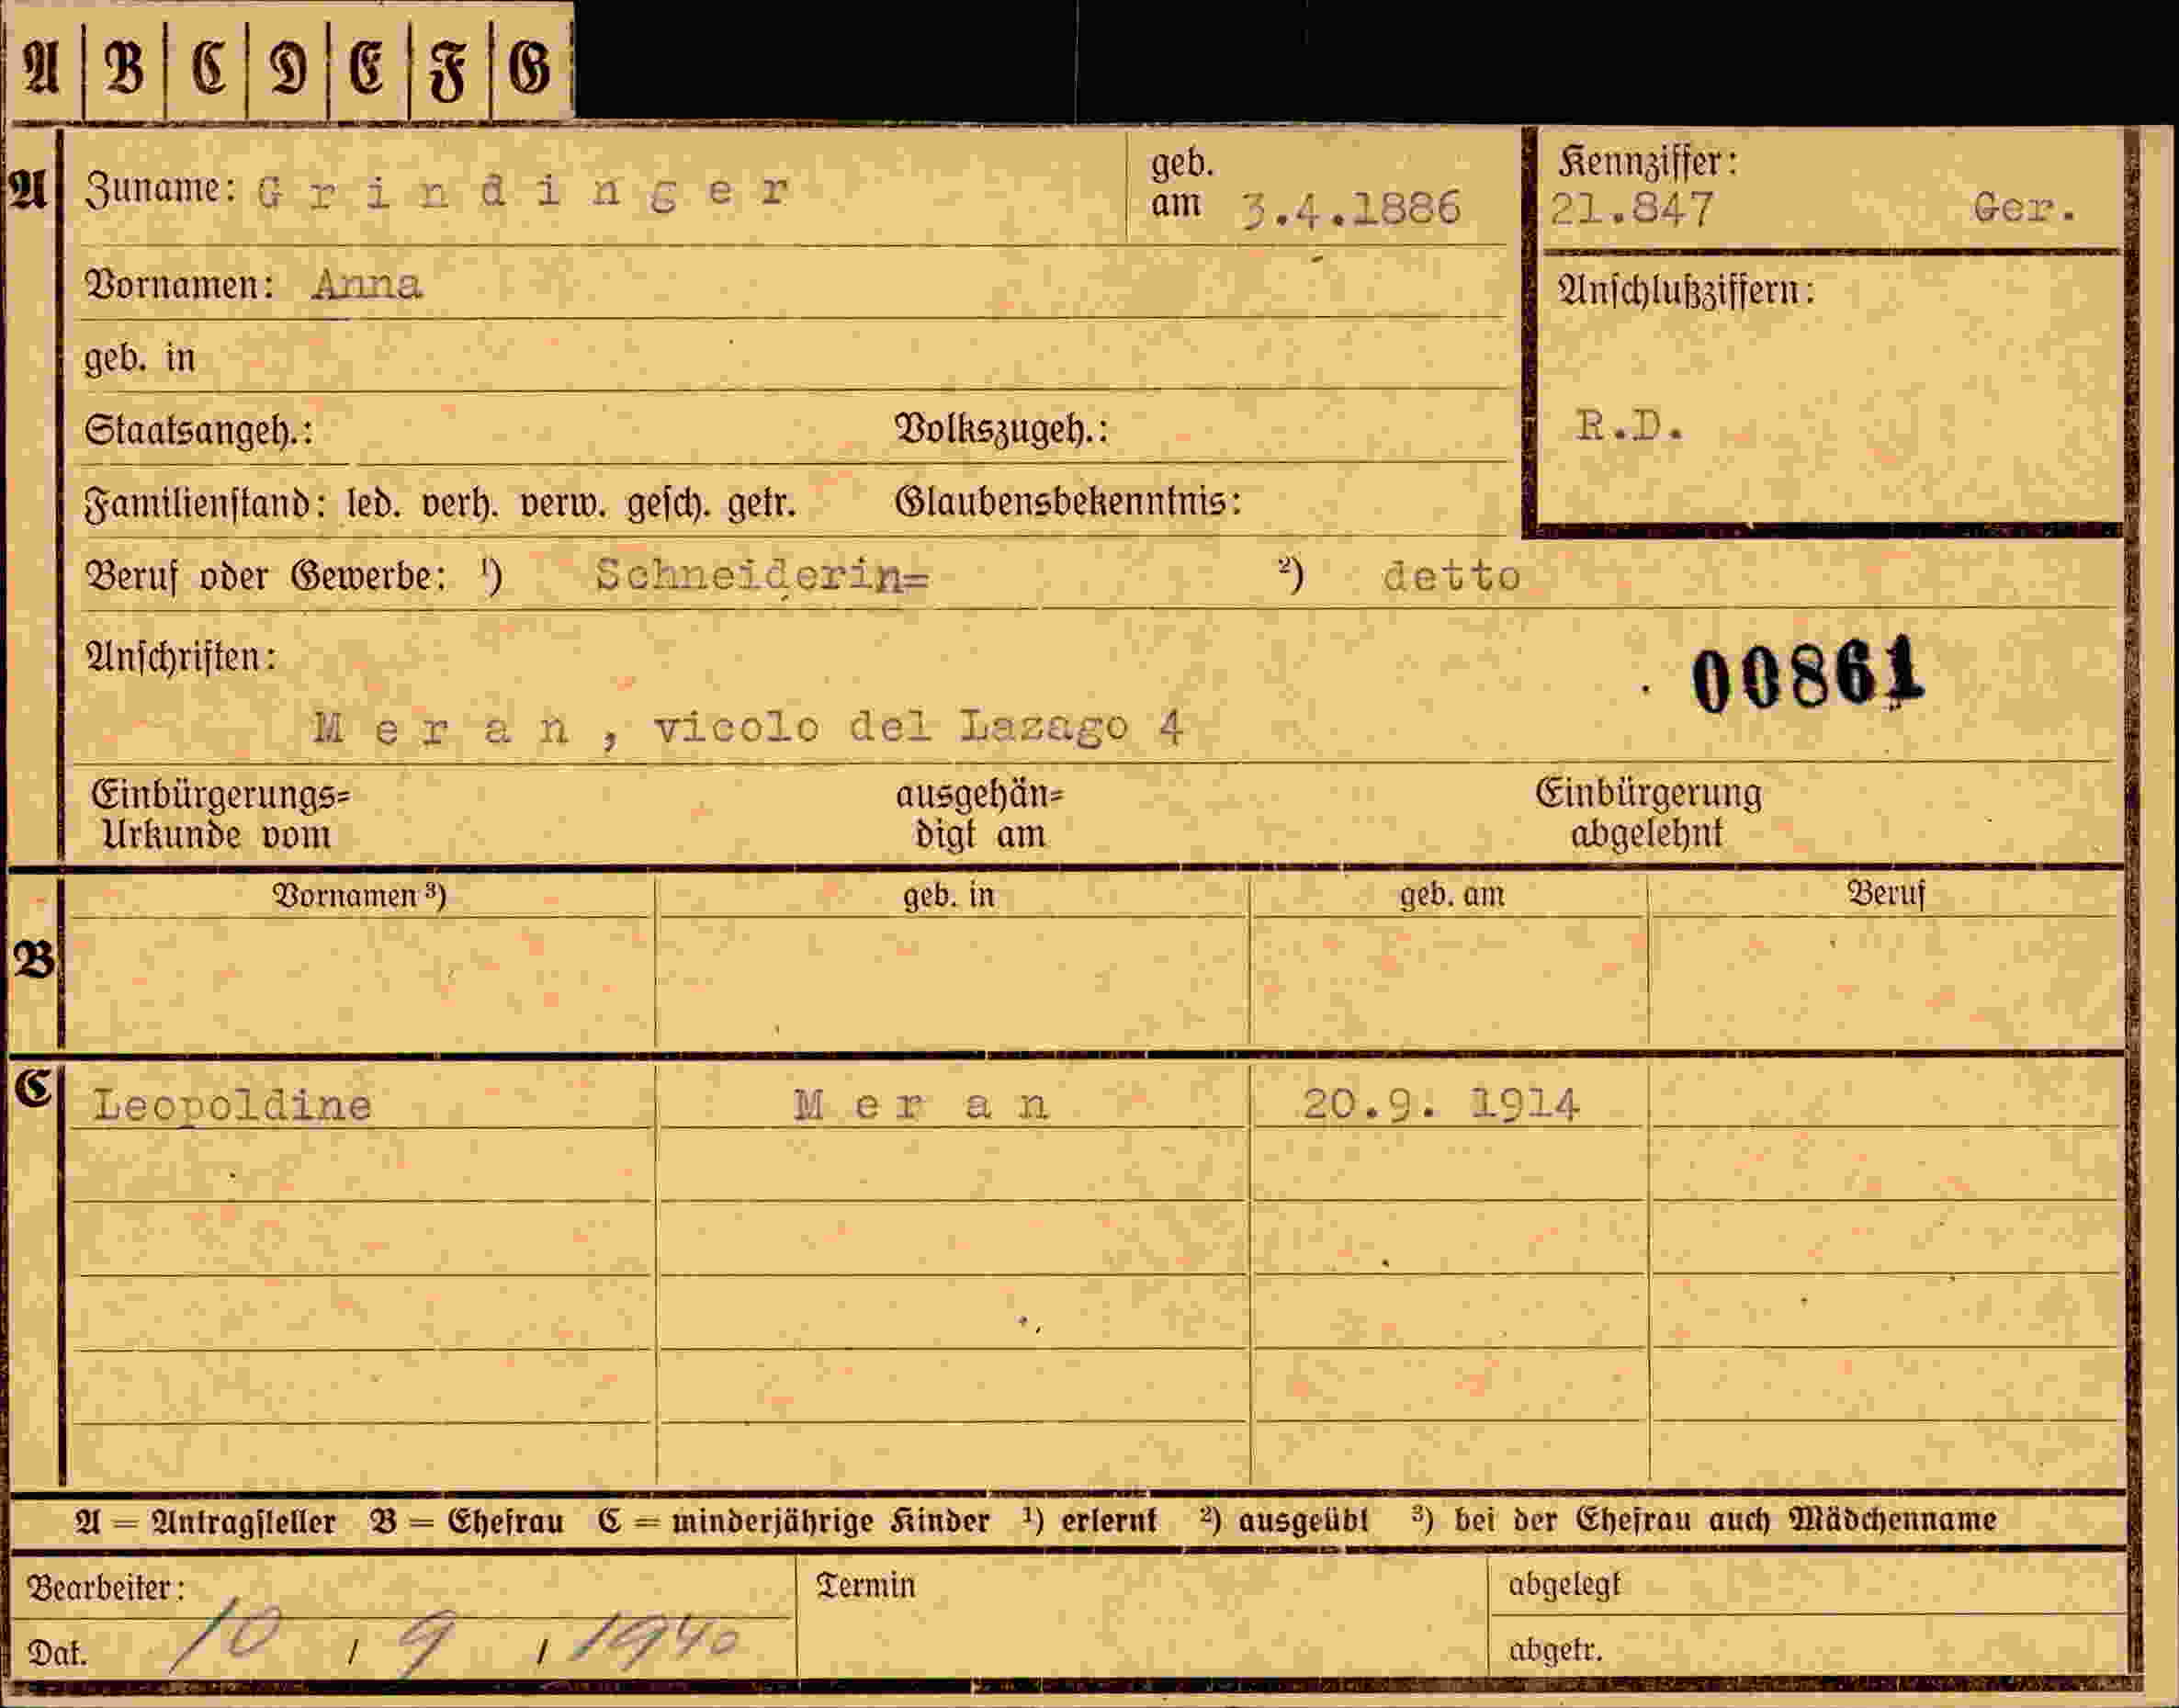 A B C D E F G
A Zuname: Grindinger geb. am 3.4.1886
Kennziffer:
21.847 Ger.
Vornamen: Anna
Anschlußziffern:
geb. in
Staatsangeh.: Volkszugeh.:
R.D.
Familienstand: led. verh. verw. gesch. getr. Glaubensbekenntnis:
Beruf oder Gewerbe: ¹) Schneiderin= ²) detto
Anschriften:
00861
Meran, vicolo del Lazago 4
Einbürgerungs= ausgehän= Einbürgerung
Urkunde vom digt am abgelehnt
Vornamen ³) geb. in geb. am Beruf
B
C Leopoldine Meran 20.9. 1914
A = Antragsteller B = Ehefrau C = minderjährige Kinder ¹) erlernt ²) ausgeübt ³) bei der Ehefrau auch Mädchenname
Bearbeiter: Termin abgelegt
Dat. 10 / 9 / 1940 abgetr.